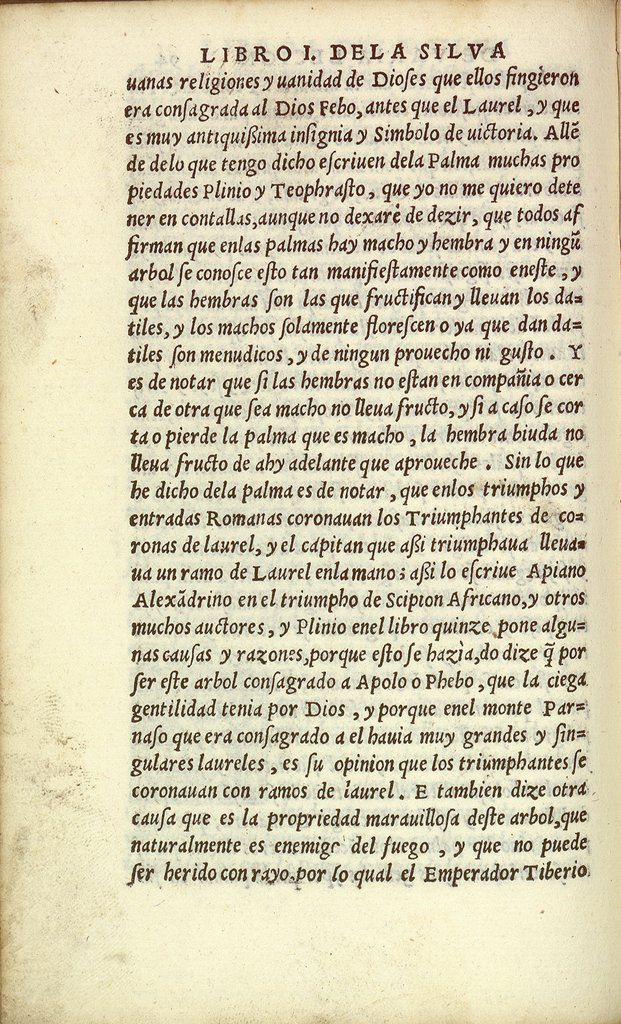 LIBRO I. DELA SILVA
uanas religiones y uanidad de Dioses que ellos fingieron
era consagrada al Dios Febo, antes que el Laurel, y que
es muy antiquißima insignia y Simbolo de uictoria. Allẽ
de delo que tengo dicho escriuen dela Palma muchas pro
piedades Plinio y Teophrasto, que yo no me quiero dete
ner en contallas, aunque no dexaré de dezir, que todos af
firman que enlas palmas hay macho y hembra y en ningũ
arbol se conosce esto tan manifiestamente como eneste, y
que las hembras son las que fructifican y lleuan los da=
tiles, y los machos solamente florescen o ya que dan da=
tiles son menudicos, y de ningun prouecho ni gusto. Y
es de notar que si las hembras no estan en compañia o cer
ca de otra que sea macho no lleua fructo, y si a caso se cor
ta o pierde la palma que es macho, la hembra biuda no
lleua fructo de ahy adelante que aproueche. Sin lo que
he dicho dela palma es de notar, que enlos triumphos y
entradas Romanas coronauan los Triumphantes de co=
ronas de laurel, y el capitan que aßi triumphaua lleua=
ua un ramo de Laurel enla mano; aßi lo escriue Apiano
Alexãdrino en el triumpho de Scipion Africano, y otros
muchos auctores, y Plinio enel libro quinze pone algu=
nas causas y razones, porque esto se hazia, do dize q̃ por
ser este arbol consagrado a Apolo o Phebo, que la ciega
gentilidad tenia por Dios, y porque enel monte Par=
naso que era consagrado a el hauia muy grandes y sin=
gulares laureles, es su opinion que los triumphantes se
coronauan con ramos de laurel. E tambien dize otra
causa que es la propriedad marauillosa deste arbol, que
naturalmente es enemigo del fuego, y que no puede
ser herido con rayo, por lo qual el Emperador Tiberio